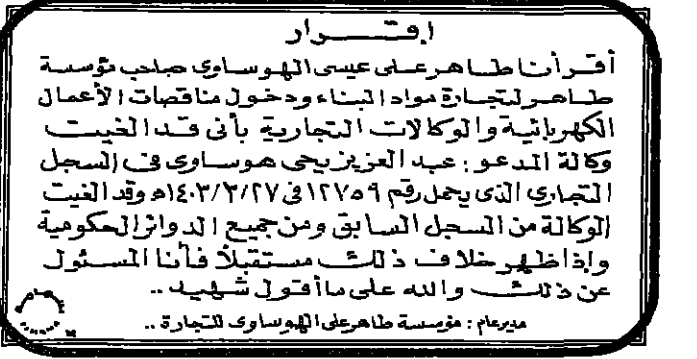 إقـــرار
أقر أنا طاهر على عيسى الهوساوى صاحب مؤسسة
طاهر لتجارة مواد البناء ودخول مناقصات الأعمال
الكهربائية والوكالات التجارية بأنى قد الغيت
وكالة المدعو : عبد العزيز يحى هوساوى فى السجل
التجارى الذى يحمل رقم ١٢٧٥٩ فى ١٤٠٣/٣/٢٧ه وقد الغيت
الوكالة من السجل السابق ومن جميع الدوائر الحكومية
وإذا ظهر خلاف ذلك مستقبلاً فأنا المسئول
عن ذلك والله على ما أقول شهيد ..
مدير عام : مؤسسة طاهر على الهوساوى للتجارة ..